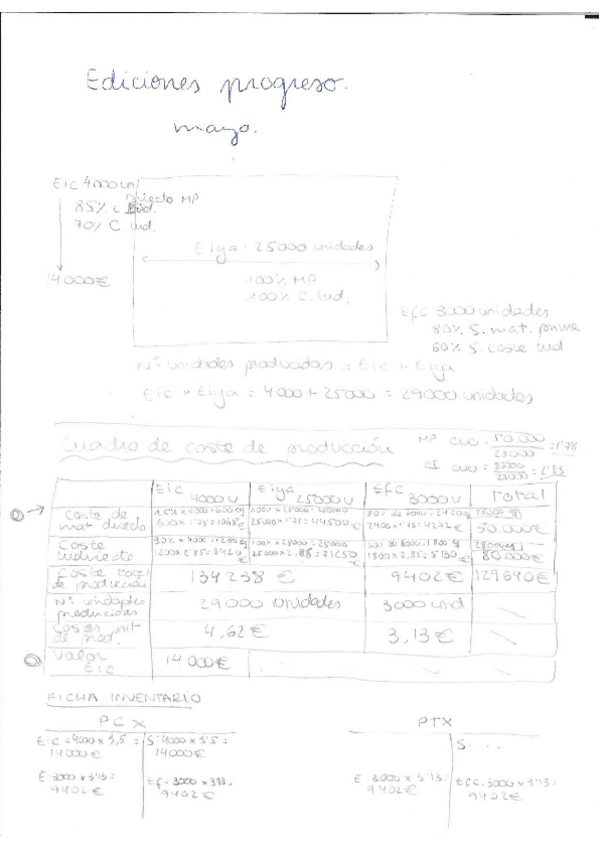 Ediciones progreso.
mayo.
Eic 4000 un
directo MP
85% C
70% C. Ind.
14000€
Eiya: 25000 unidades
100% MP
100% C. Ind.
Efc 3000 unidades
80% S. mat. prima
60% S. coste ind
Nº unidades producidas = Eic + Eiya
Eic + Eiya = 4000 + 25000 = 29000 unidades
Cuadro de coste de producción
MP CUO: 50.000 = 1'78
28000
CI CUO = 80000 = 2'85
28000
Eic 4000 U
Eiya 25000 U
Efc 3000 U
Total
Coste de mat directo
600 x 1'78 = 1068€
25000 x 1'78 = 44500€
2400 x 1'78 = 4272€
50.000€
Coste Indirecto
1200 x 2'85 = 3420
25000 x 2,85 = 71250
1800 x 2,85 = 5130€
80.000€
Coste total de producción
134238 €
9402€
129640€
Nº unidades producidas
29000 unidades
3000 und
Costes unit de prod.
4,62€
3,13€
Valor Eic
14000€
FICHA INVENTARIO
PC X
Eic = 4000 x 3,5 =
14000€
S: 4000 x 3'5 =
14000€
E: 3000 x 3'13 =
9402€
Ef: 3000 x 3'13:
9402€
PTX
S: ....
E: 3000 x 3'13:
9402€
Efc: 3000 x 3'13:
9402€